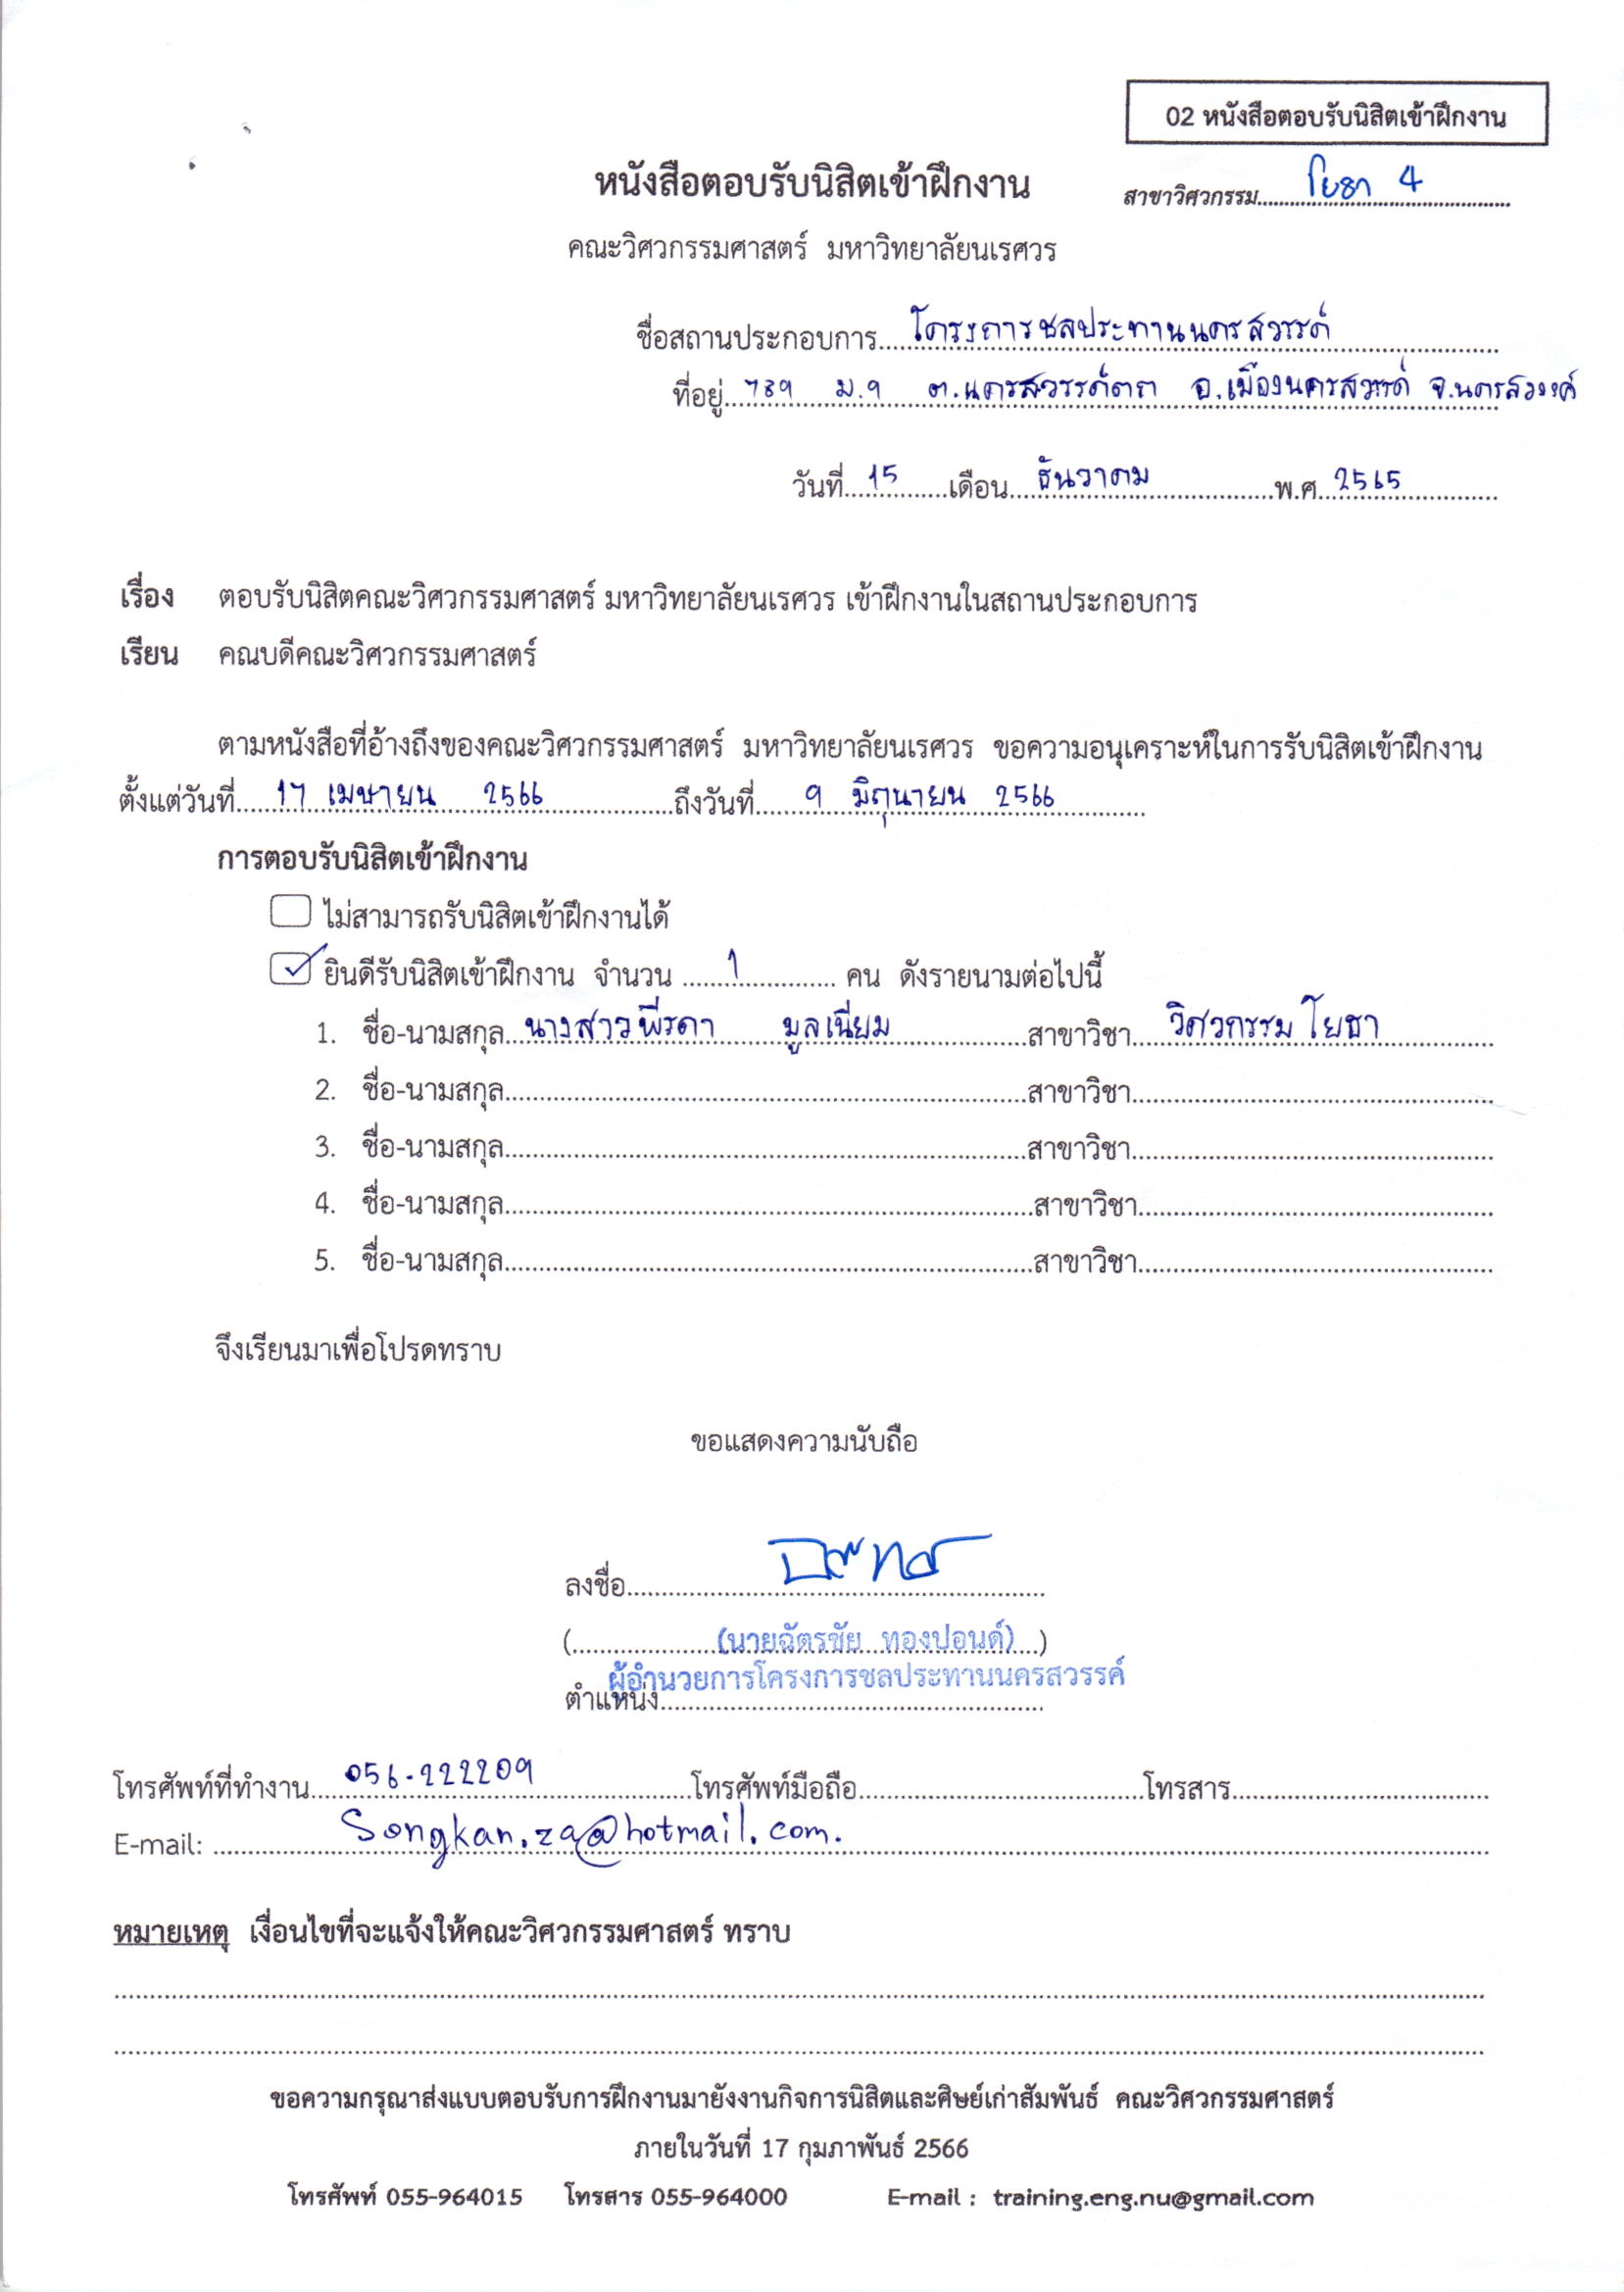 02 หนังสือตอบรับนิสิตเข้าฝึกงาน
หนังสือตอบรับนิสิตเข้าฝึกงาน
สาขาวิศวกรรม โยธา 4
คณะวิศวกรรมศาสตร์ มหาวิทยาลัยนเรศวร
ชื่อสถานประกอบการ โครงการชลประทานนครสวรรค์
ที่อยู่ 789 ม.9 ต.นครสวรรค์ตก อ.เมืองนครสวรรค์ จ.นครสวรรค์
วันที่ 15 เดือน ธันวาคม พ.ศ. 2565
เรื่อง ตอบรับนิสิตคณะวิศวกรรมศาสตร์ มหาวิทยาลัยนเรศวร เข้าฝึกงานในสถานประกอบการ
เรียน คณบดีคณะวิศวกรรมศาสตร์
ตามหนังสือที่อ้างถึงของคณะวิศวกรรมศาสตร์ มหาวิทยาลัยนเรศวร ขอความอนุเคราะห์ในการรับนิสิตเข้าฝึกงาน
ตั้งแต่วันที่ 17 เมษายน 2566 ถึงวันที่ 9 มิถุนายน 2566
การตอบรับนิสิตเข้าฝึกงาน
ไม่สามารถรับนิสิตเข้าฝึกงานได้
ยินดีรับนิสิตเข้าฝึกงาน จำนวน 1 คน ดังรายนามต่อไปนี้
1. ชื่อ-นามสกุล นางสาวพีรดา มูลเนียม สาขาวิชา วิศวกรรมโยธา
2. ชื่อ-นามสกุล สาขาวิชา
3. ชื่อ-นามสกุล สาขาวิชา
4. ชื่อ-นามสกุล สาขาวิชา
5. ชื่อ-นามสกุล สาขาวิชา
จึงเรียนมาเพื่อโปรดทราบ
ขอแสดงความนับถือ
ลงชื่อ
(นายฉัตรชัย ทองปอนด์)
ผู้อำนวยการโครงการชลประทานนครสวรรค์
ตำแหน่ง
โทรศัพท์ที่ทำงาน 056-222209 โทรศัพท์มือถือ โทรสาร
E-mail: Songkan.za@hotmail.com.
หมายเหตุ เงื่อนไขที่จะแจ้งให้คณะวิศวกรรมศาสตร์ ทราบ
ขอความกรุณาส่งแบบตอบรับการฝึกงานมายังงานกิจการนิสิตและศิษย์เก่าสัมพันธ์ คณะวิศวกรรมศาสตร์
ภายในวันที่ 17 กุมภาพันธ์ 2566
โทรศัพท์ 055-964015 โทรสาร 055-964000 E-mail : training.eng.nu@gmail.com